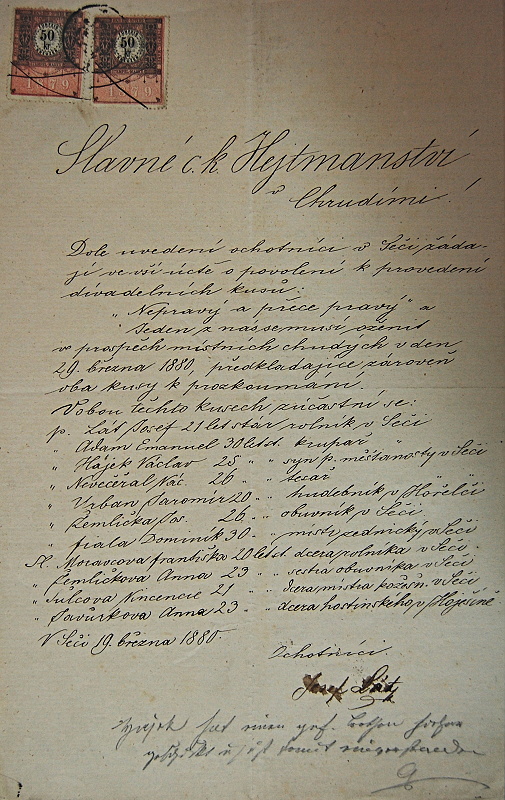 50 kr 50 kr
1879 1879
Slavné c. k. Hejtmanství
v
Chrudimi!
Dole uvedení ochotníci v Seči žáda-
jí ve vší úctě o povolení k provedení
divadelních kusů:
"Nepravý a přece pravý" a
Jeden z nás se musí oženit
ve prospěch místních chudých v den
29. března 1880, předkládajíce zároveň
oba kusy k prozkoumání.
V obou těchto kusech zúčastní se:
p. Lát Josef 21 let stár rolník v Seči
" Adam Emanuel 30 let st. krupař "
" Hájek Václav 25 " " syn p. měšťanosty v Seči
" Nevečeřal Vác. 26 " " tesař
" Urban Jaromír 20 " " hudebník v
" Žemlička Jos. 26 " " obuvník v Seči
" Fiala Dominik 30 " " mistr zednický v Seči
Sl. Moravcova Františka 20 let st. dcera rolníka v Seči
" Žemličkova Anna 23 " " sestra obuvníka v Seči
" Vincencie 21 " " dcera mistra v Seči
" Anna 23 " " dcera hostinského v
V Seči 19. března 1880.
Ochotníci.
Josef Lát
Hajek hat einen